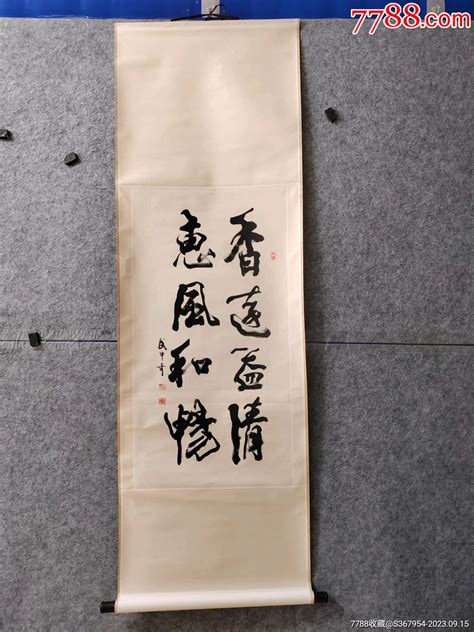 7788.com
香远益清
惠风和畅
7788收藏@S367954-2023.09.15